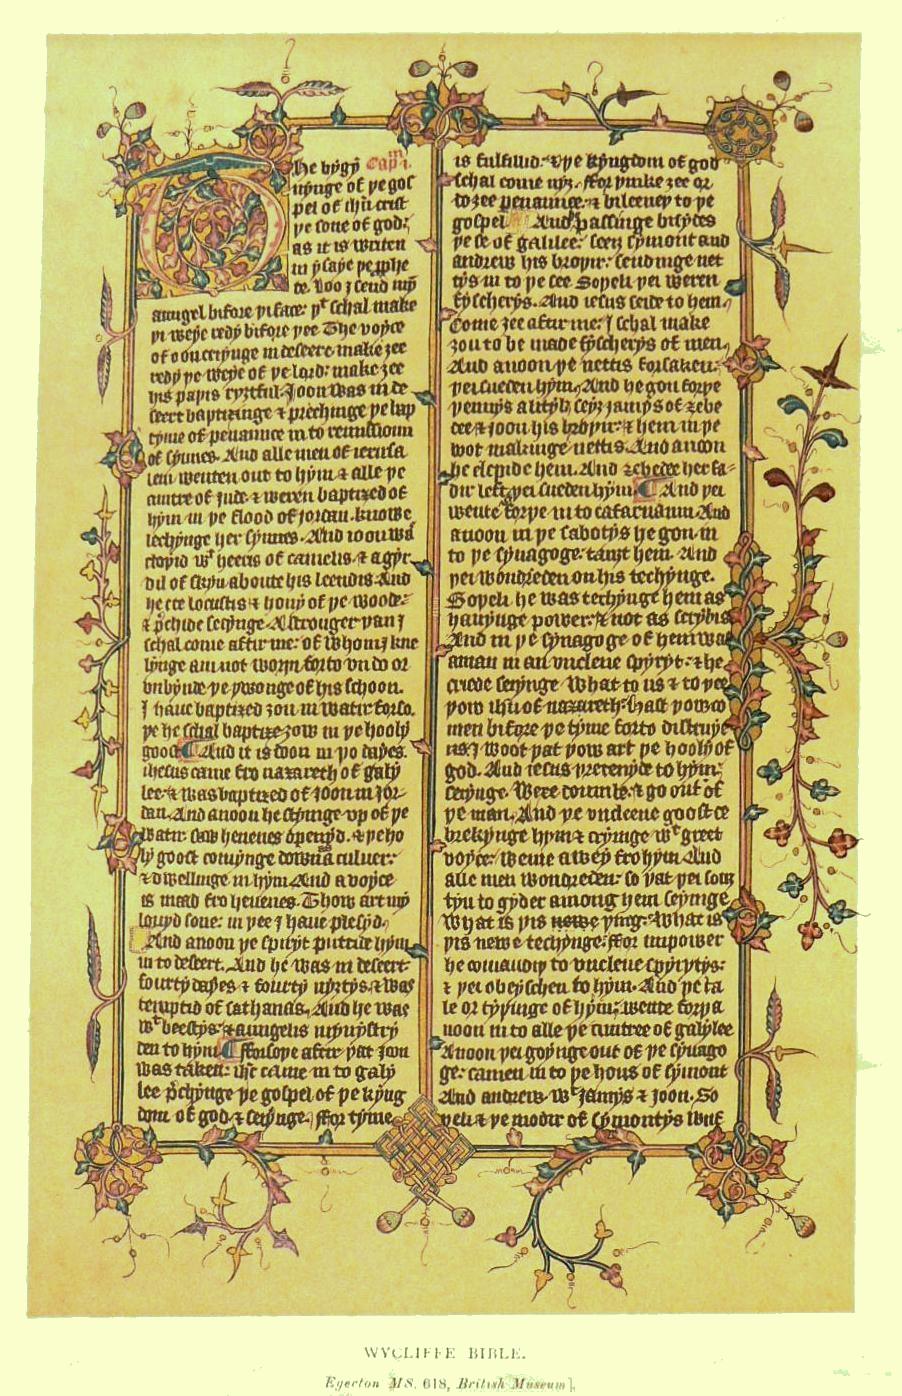 The bygȳ Cap̄m i.
nynge of þe gos
pel of ih̄u crist
þe sone of god:
as it is writen
in ysaye þe ꝓphe
te. Loo I send mȳ
aungel bifore þi face: þt schal make
þi weye redy bifore þee The voyce
of oon criynge in deseert: make ȝee
redy þe weye of þe lord: make ȝee
his paþis ryȝtful. Joon was in de
seert baptizinge & prechinge þe bap
tyme of penaunce in to remissioun
of synnes. And alle men of ierusa
lem wenten out to hym & alle þe
cuntre of Jude & weren baptized of
hym in þe flood of jordan. knowe
lechynge her synnes. And ioon was
cloþid wt heeris of camelis: & a gyr
dil of skyn aboute his leendis. And
he eete locustis & hony of þe woode:
& p̄chide seiynge. A stronger þan I
schal come aftir me: of whom I kne
lynge am not worþi forto vndo or
vnbynde þe þwonge of his schoon.
I haue baptized ȝou in watir forso.
þe he schal baptize ȝow in þe hooly
goost ¶ And it is doon in þo dayes.
ihesus came fro nazareth of galy
lee & was baptized of Joon in Jor
dan. And anoon he stiynge vp of þe
watir: saw heuenes openyd. & þe ho
ly goost comynge doun as a culuer:
& dwellinge in hym And a voyce
is maad fro heuenes. Thow art my
louyd sone: in þee I haue plesyd.
And anoon þe spiryt puttide hym
in to desert. And he was in deseert
fourty dayes & fourty nyȝtys. & was
temptid of sathanas. And he was
wt beestys. & aungelis mynystry
den to hym ¶ fforsoþe aftir þat Joon
was taken: ih̄c came in to galy
lee p̄chynge þe gospel of þe kyng
dom of god & seiynge. ffor tyme
is fulfillid: & þe kyngdom of god
schal come nyȝ. fforþinke ȝee or
do ȝee penaunce: & bileeueþ to þe
gospel And passinge bisydes
þe se of galilee: seeȝ symont and
andrew his broþir: sendinge net
tys in to þe see Soþeli þei weren
fyscherys. And iesus seide to hem.
Come ȝee aftir me: I schal make
ȝou to be made fyscherys of men.
And anoon þe nettis forsaken:
þei sueden hym. And he gon forþe
þennys a lityl seyȝ Jamys of ȝebe
dee & Joon his broþir: & hem in þe
boot makinge nettis. And anoon
he clepide hem. And ȝebedee her fa-
dir left þei sueden hym ¶ And þei
wente forþe in to cafarnaum And
anoon in þe sabotys he gon in
to þe synagoge: tauȝt hem. And
þei wondreden on his techynge.
Soþeli he was techynge hem as
hauynge power: & not as scrybis
And in þe synagoge of hem was
a man in an vnclene spyryt: & he
criede seiynge What to us & to þee
þow ih̄u of nazareth: hast þow co
men bifore þe tyme forto distruye
us: I woot þat þow art þe hooly of
god. And iesus þretenyde to hym:
seiynge. Were doumb: & go out of
þe man. And þe vnclene goost ce
brekynge hym & criynge wt greet
voyce: wente awey fro hym And
alle men wondreden: so þat þei souȝ
tyn to gyder among hem seiynge
What is þis newe þing: What is
þis newe techynge: ffor in power
he comaundiþ to vnclene spyrytys:
& þei obeyschen to hym. And þe ta
le or tyþinge of hym: wente forþ a
noon in to alle þe cuntree of galylee
Anoon þei goynge out of þe synago
ge: camen in to þe hous of symont
And andrew wt Jamys & Joon. So
þeli & þe modir of symontys wijf
WYCLIFFE BIBLE.
Egerton MS. 618, British Museum].